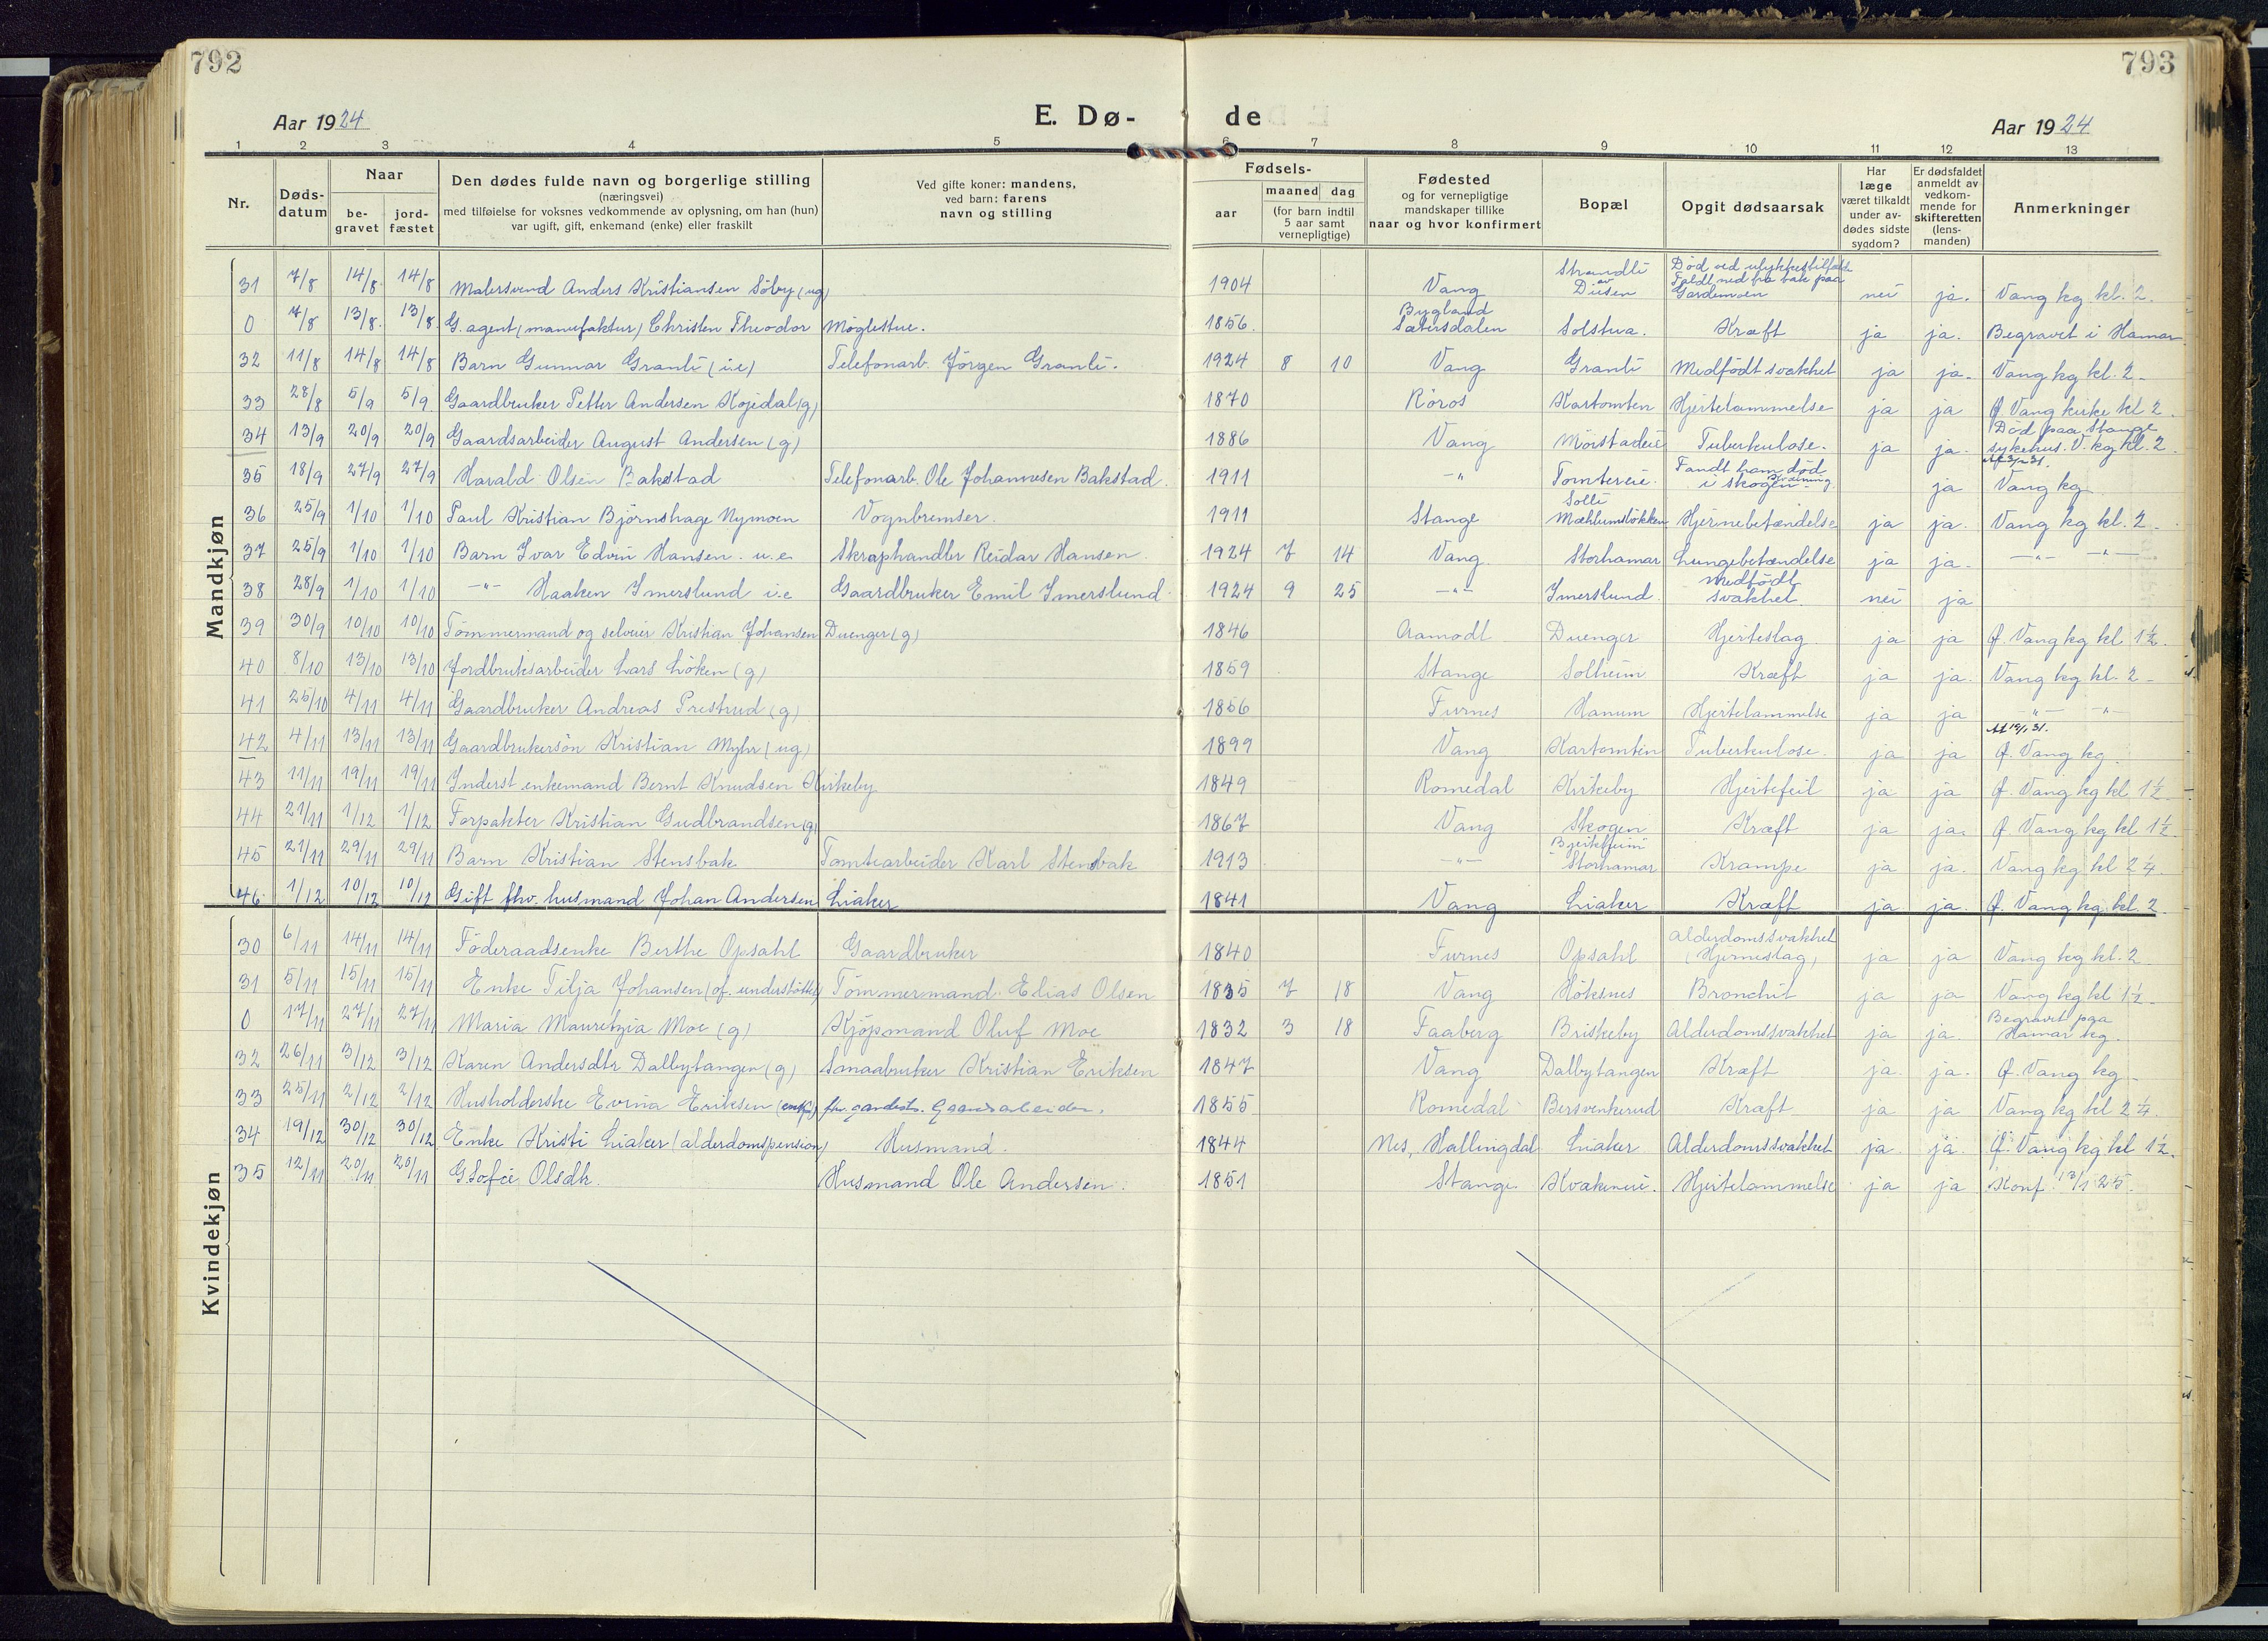 792
793
Aar 1924
E. Dø-
de
Aar 1924
1 2 3 4 5 6 7 8 9 10 11 12 13
Nr.
Døds-
datum
Naar
be-
gravet
jord-
fæstet
Den dødes fulde navn og borgerlige stilling
(næringsvei)
med tilføielse for voksnes vedkommende av oplysning, om han (hun)
var ugift, gift, enkemand (enke) eller fraskilt
Ved gifte koner: mandens,
ved barn: farens
navn og stilling
Fødsels-
aar
maaned dag
(for barn indtil
5 aar samt
vernepligtige)
Fødested
og for vernepligtige
mandskaper tillike
naar og hvor konfirmert
Bopæl
Opgit dødsaarsak
Har
læge
været tilkaldt
under av-
dødes sidste
sygdom?
Er dødsfaldet
anmeldt av
vedkom-
mende for
skifteretten
(lens-
manden)
Anmerkninger
Mandkjøn
31 7/8 14/8 14/8 Malersvend Anders Kristiansen Söby (ug) 1904 Vang Strandli av Disen Död ved ulykkestilfælde Faldt ned fra tak paa Gardemoen nei ja. Vang kg kl. 2.
0 7/8 13/8. 13/8. G. agent (manufaktur) Christen Theodor Möglestue. 1856. Bygland Sætersdalen Solstua. Kræft ja ja. Begravet i Hamar
32 11/8 14/8 14/8 Barn Gunnar Granli (i.e) Telefonarb. Jörgen Granli. 1924 8 10 Vang Granli Medfödt svakhet ja ja. Vang kg kl. 2
33 28/8 5/9 5/9. Gaardbruker Petter Andersen Kojedal (g) 1870 Röros Kartomten Hjertelammelse ja ja Ø. Vang kirke kl 2.
34 13/9 20/9 20/9 Gaardsarbeider August Andersen (g) 1886 Vang Mörstadeie Tuberkulose. ja ja. Död paa Stange sykehus. V. kg kl. 2.
35 18/9 27/9 27/9 Harald Olsen Bakstad Telefonarb. Ole Johannesen Bakstad. 1911 -"- Tomtereie. Fandt ham död i skogen ja Vang kg
36 25/9 1/10 1/10 Paul Kristian Björnshage Nymoen Vognbremser. 1911 Stange Solli Mæhlumslökken Hjernebetændelse ja ja. Vang kg kl. 2
37 25/9 1/10 1/10 Barn Ivar Edvin Hansen. u.e Skraphandler Reidar Hansen. 1924 7 14 Vang. Storhamar Lungebetændelse ja ja. -"- -"-
38 28/9 1/10 1/10 -"- Haaken Imerslund i.e Gaardbruker Emil Imerslund. 1924 9 25 -"- Imerslund. Medfödt svakhet. nei ja
39 30/9 10/10 10/10 Tömmermand og selveier Kristian Johansen Duenger (g) 1846 Aamodt Duenger Hjerteslag ja ja Ø. Vang kg kl 1½.
40 8/10 13/10 13/10 Jordbruksarbeider Lars Löken (g) 1859 Stange Solheim Kræft ja ja. Vang kg kl. 2
41 25/10 4/11 4/11 Gaardbruker Andreas Prestrud (g) 1856 Furnes Hanum Hjertelammelse ja ja -"- -"-
42 4/11 13/11 13/11 Gaardbrukersön Kristian Myhr (ug) 1899 Vang Kartomten Tuberkulose. ja ja Ø. Vang kg.
43 11/11 19/11 19/11 Inderst enkemand Bernt Knudsen Kirkeby 1849 Romedal Kirkeby Hjertefeil ja ja Ø. Vang kg kl 1½
44 21/11 1/12 1/12 Forpakter Kristian Gudbrandsen (g) 1867 Vang Skogen Kræft ja ja. Ø. Vang kg kl 1½.
45 21/11 29/11 29/11 Barn Kristian Stensbak Tomtearbeider Karl Stensbak 1913 -"- Bjerkheim Storhamar Krampe ja ja. Vang kg kl 2¼.
46. 1/12 10/12 10/12 Gift fhv. husmand Johan Andersen Liaker 1841 Vang Liaker Kræft ja ja. Ø. Vang kg kl. 2
Kvindekjøn
30 6/11 14/11 14/11 Föderaadsenke Berthe Opsahl Gaardbruker 1840 Furnes Opsahl Alderdomssvakhet (Hjerneslag) ja ja Vang kg kl. 2
31 5/11 15/11 15/11 Enke Tilja Johansen (of. understöttet) Tömmermand. Elias Olsen 1835 7 18 Vang Höksnes Bronchit ja ja Vang kg kl 1½
0 17/11 27/11 27/11 Maria Mauretzia Moe (g) Kjöpmand Oluf Moe 1832 3 18 Faaberg Briskeby Alderdomssvakhet ja ja. Begravet paa Hamar kg.
32 26/11 3/12 3/12 Karen Andersdtr Dalbytangen (g) Smaabruker Kristian Eriksen 1847 Vang Dalbytangen Kræft ja. ja. Ø. Vang kg
33 25/11 2/12 2/12 Husholderske Evina Eriksen (enke) Gaardsarbeider. 1855 Romedal Bersvenkerud Kræft ja ja Vang kg kl 2¼.
34 19/12 30/12 30/12 Enke Kristi Liaker (alderdomspension) Husmand. 1844 Nes, Hallingdal Liaker Alderdomssvakhet ja. ja. Ø. Vang kg kl 1½.
35 12/11 20/11 20/11 G Sofie Olsdtr. Husmand Ole Andersen. 1851 Stange Kvakeneie. Hjertelammelse ja ja Konf. 13/1 25.